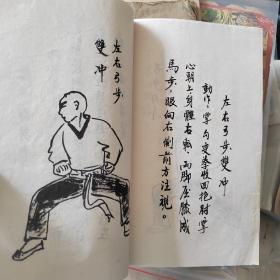 左右弓步雙冲
動作：掌勾变拳收回抱肘掌
心朝上，身體右轉，兩脚屈膝成
馬步，眼向右側前方注視。
左右弓步
雙冲